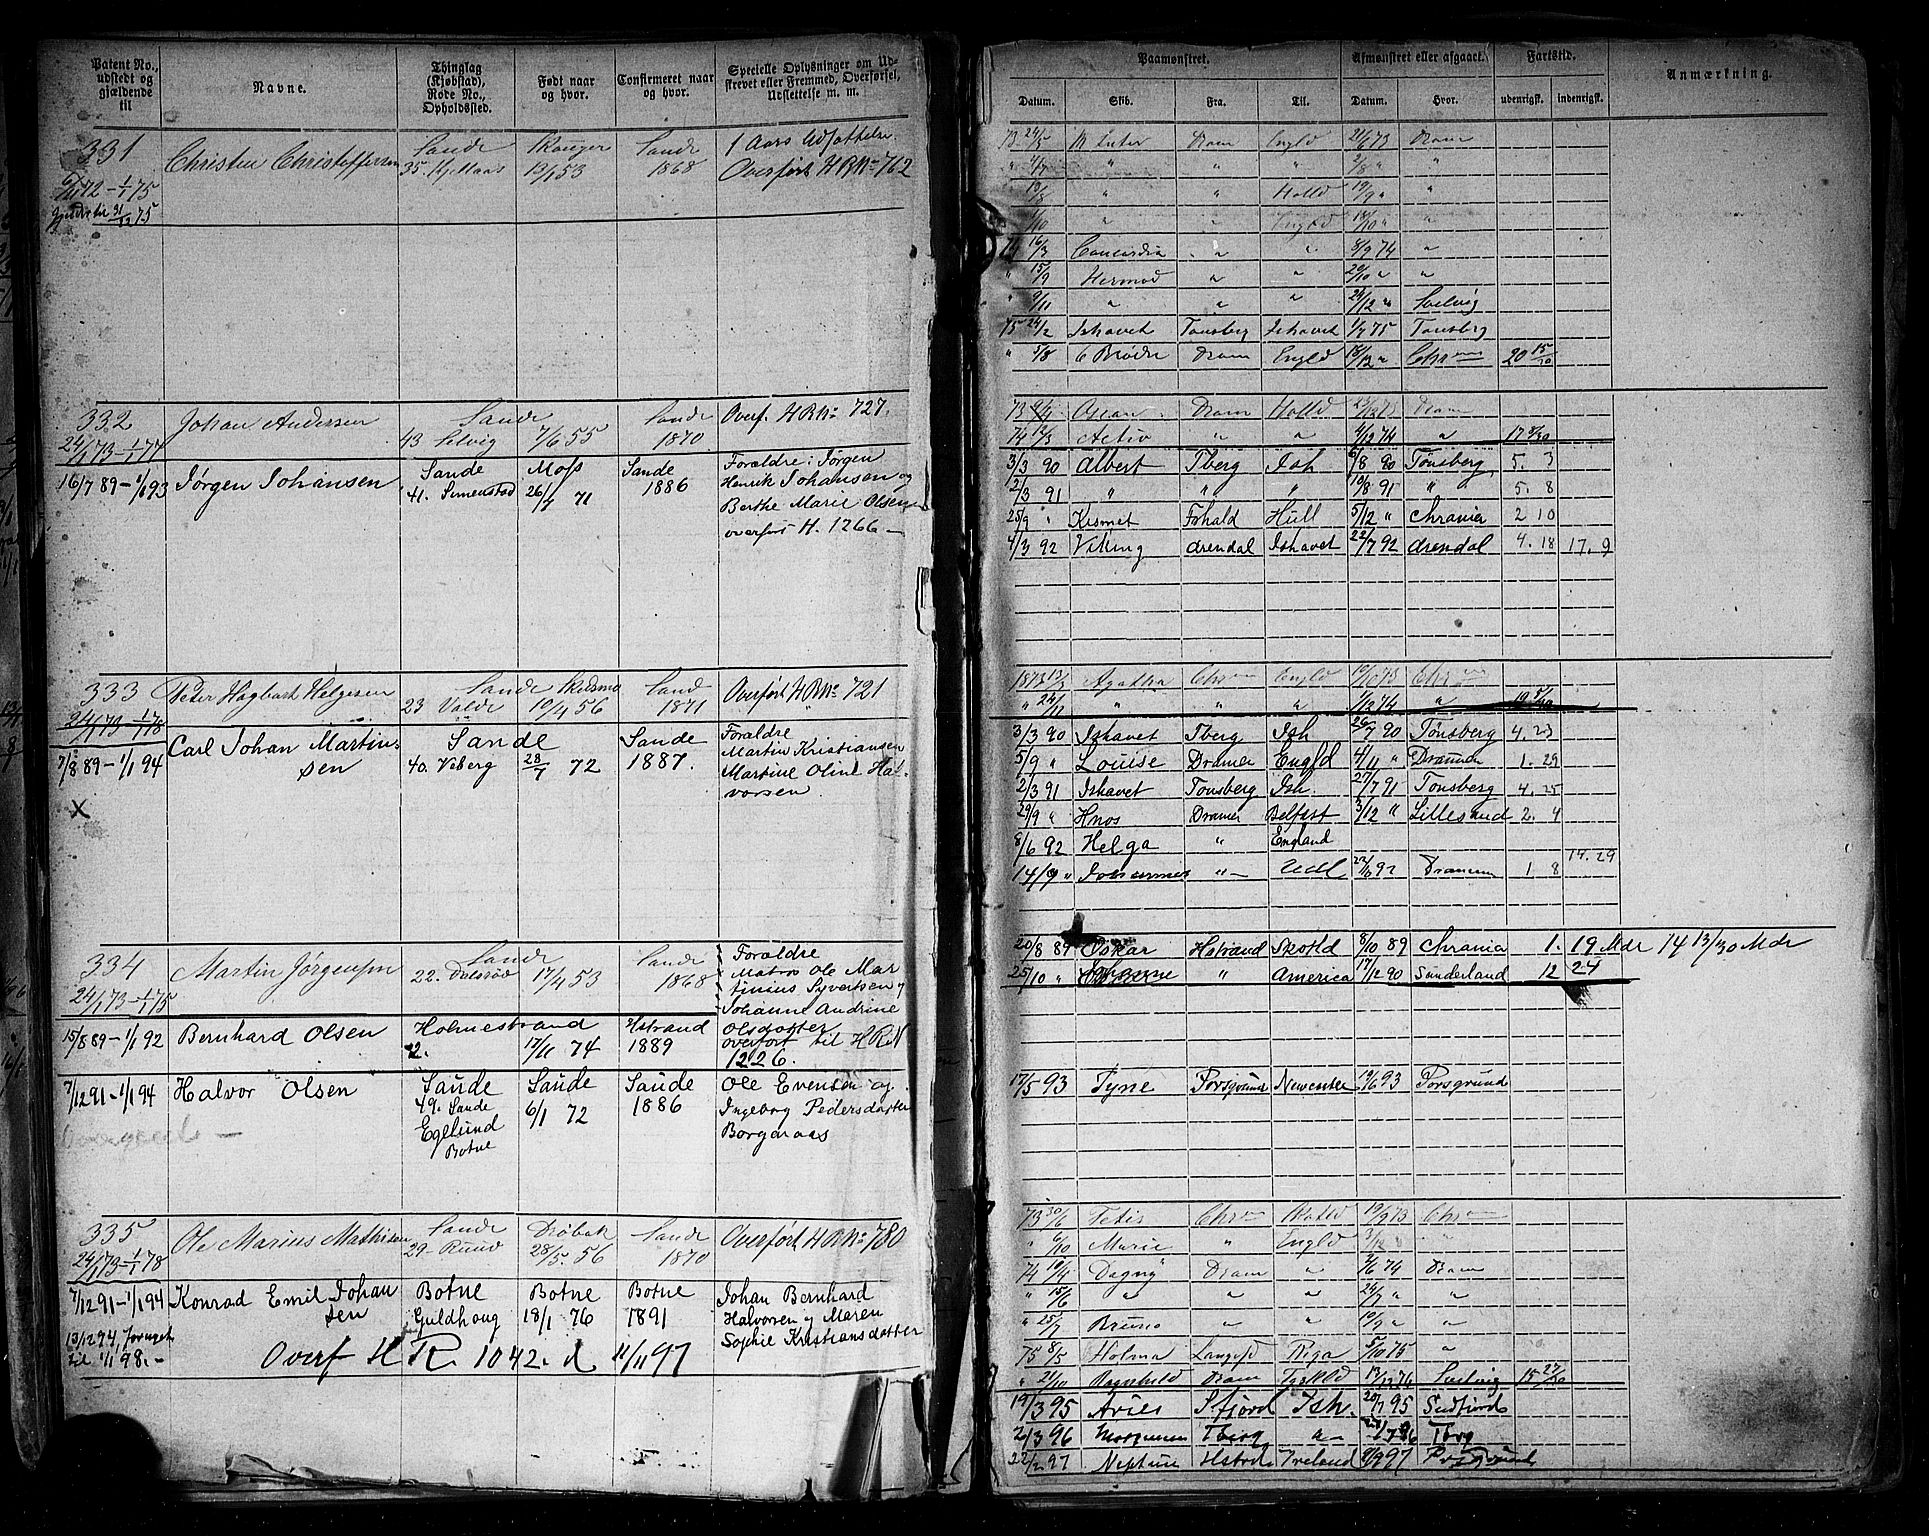 Patent No., udstedt og gjældende til
Navne.
Thinglag (Kjøbstad), Rode No., Opholdssted.
Født naar og hvor.
Confirmeret naar og hvor.
Specielle Oplysninger om Udskrevet eller Fremmed, Overførsel, Udslettelse m. m.
331 Christen Christoffersen Sande Skouger Sande 1 Aars Udsættelse.
35. 13/1 53 1868 Overført H R No 762
72 - 1/1 75
31/12 75
332 Johan Andersen Sande Sande Overf. H R No 727.
24/1 73 - 1/1 74 43 Selvig 7/6 55 1870
16/7 89 - 1/1 93 Jørgen Johansen Sande Moss Sande Forældre: Jørgen
41. Semenstad 26/7 71 1886 Henrik Johansen og
Berthe Marie Olsen
overført H. 1266 -
333 Peter Hagbart Helgesen Sande Skedsmo Sande Overført H R No 721
24/1 73 - 1/1 78 23 Valde 10/4 56 1871
7/8 89 - 1/1 94 Carl Johan Martinsen Sande Sande Forældre
40. Veberg 28/7 72 1887. Martin Kristiansen
Martine Oline Hal
vorsen
X
334 Martin Jørgensen Sande Sande Forældre
24/1 73 - 1/1 75 22. Dalsrød 17/4 53 1868 Matros Ole Mar
tinius Syvertsen og
Johanne Andrine
15/8 89 - 1/1 92 Bernhard Olsen Holmestrand Hstrand Olsdatter
2. 17/11 74 1889 overført til H R N
1226.
7/12 91 - 1/1 94 Halvor Olsen Sande Sande Sande Ole Evensen og
49. Sande 6/1 72 1886 Ingeborg Pedersdatter
Egelund Borgeraas
Botne
335 Ole Marius Mathisen Sande Drøbak Sande Overført H R No 780
24/1 73 - 1/1 78 29 Ruud 28/5. 56 1870
7/12 91 - 1/1 94 Konrad Emil Johan Botne Botne Botne Johan Bernhard
sen Guldhoug 18/1 76 1891 Halvorsen og Maren
13/12 94 fornyet Sophie Kristiansdatter
til 1/1 98. - Overf H R. 1042. d 11/11 97
Paamønstret.
Afmønstret eller afgaaet.
Fartstid.
Anmærkning.
Datum. Skib. Fra. Til. Datum. Hvor. udenrigsk. indenrigsk.
73 24/5 Dram Engld 21/6 73 Dram
" 4/7 " " 2/8 " "
19/8 " " Holld 19/9 " "
1/10 " " Engld 18/10 " "
74 16/3 Concordia " " 8/9 74 "
" 15/9 Hermod " " 20/10 " "
" 9/11 " " " 24/12 " Svelvig
75 24/2 Ishavet Tønsberg Ishavet 1/7 75 Tønsberg
" 5/8 6 Brødre Dram Engld 18/12 " Chr 20 15/30
73 Dram Holld Dram
74 12/3 Activ " " 4/12 74 " 17 8/30
3/3 90 Albert Tberg Ish 6/8 90 Tønsberg 5. 3
2/3 91 " " " 10/8 91 " 5. 8
25/9 " Kismet Fshald Hull 5/12 " Chrania 2 10
4/3 92 Viking Arendal Ishavet 22/7 92 Arendal 4. 18 17. 9
1873 13/3 Agatha Chr Engld 19/10 73 Chr
" 24/11 " " " 1/12 74 "
3/3 90 Ishavet Tberg Ish 26/7 90 Tønsberg 4. 23
5/9 " Louise Dramen Engld 4/11 " Dramen 1. 29
2/3 91 Ishavet Tønsberg Ish. 27/7 91 Tønsberg 4. 25
29/9 " Hnos Dramen Belfast 3/12 " Lillesand 2. 4
8/6 92 Helga " England
14/9 " Johannes " Udl 22/10 92 Dramen 1 8 14. 29
20/8 89 Oskar Hstrand Skotld 8/10 89 Chrania 1. 19 Mdr 14 13/30 Mdr
25/10 " " America 17/12 90 Sunderland 12 24
17/5 93 Tyne Porsgrund Newcastle 19/6 93 Porsgrund
73 30/6 Tetis Chr Skotld 19/9 73 Chr
" 6/10 Marie " Engld "
74 10/4 Dagny Dram " 2/6 74 Dram
" 15/6 " " " 24/7 " "
" 25/7 Bruno " " 19/9 " "
75 8/5 Holma Langesd Riga 5/10 75 "
" 21/10 Ragnhild Dram Tyskld 17/12 76 Svelvig 15 27/30
19/3 95 Aries Sfjord Ish. 20/7 95 Sndfjord
2/3 96 Tberg " Tbrg
22/2 97 Neptune Hstrd Ireland 9/9 97 Porsgrund